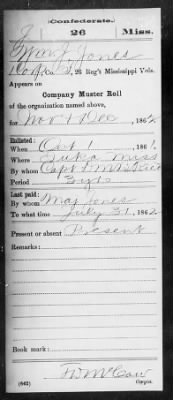 Confederate.
J 26 Miss.
Wm J. Jones
Co. 26 Reg't Mississippi Vols.
Appears on
Company Muster Roll
of the organization named above,
for Nov & Dec, 1862.
Enlisted:
When Oct 1, 1861.
Where Iuka Miss
By whom Capt
Period 3 yrs
Last paid:
By whom Maj Jones
To what time July 31, 1862.
Present or absent Present
Remarks:
Book mark:
(642)
Copyist.